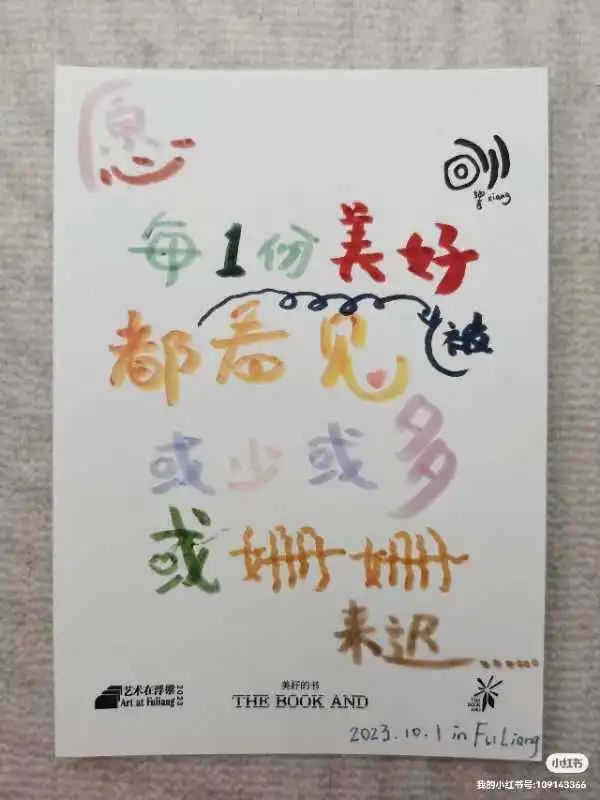 愿
xiang
每1份美好
都看见
被
或少或多
或姗姗
来迟......
艺术在浮梁 2023
Art at Fuliang
美好的书
THE BOOK AND
THE BOOK AND
2023.10.1 in FuLiang
小红书
我的小红书号:109143366